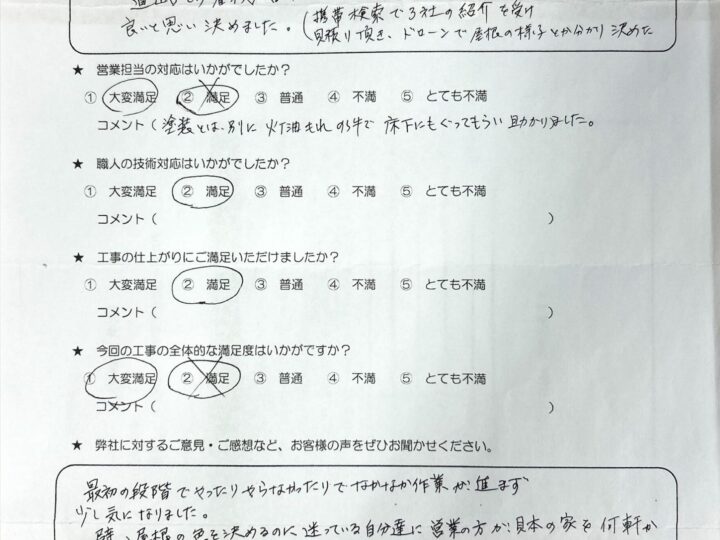 良いと思い決めました。(携帯検索で3社の紹介を受け
見積り頂き、ドローンで屋根の様子とか分かり決めた
★ 営業担当の対応はいかがでしたか？
① 大変満足 ② 満足 ③ 普通 ④ 不満 ⑤ とても不満
コメント（塗装とは別に灯油もれの件で床下にもぐってもらい助かりました。
★ 職人の技術対応はいかがでしたか？
① 大変満足 ② 満足 ③ 普通 ④ 不満 ⑤ とても不満
コメント（ ）
★ 工事の仕上がりにご満足いただけましたか？
① 大変満足 ② 満足 ③ 普通 ④ 不満 ⑤ とても不満
コメント（ ）
★ 今回の工事の全体的な満足度はいかがですか？
① 大変満足 ② 満足 ③ 普通 ④ 不満 ⑤ とても不満
コメント（ ）
★ 弊社に対するご意見・ご感想など、お客様の声をぜひお聞かせください。
最初の段階でやったりやらなかったりでなかなか作業が進まず
少し気になりました。
壁、屋根の色を決めるのに迷っている自分達に営業の方が見本の家を何軒か